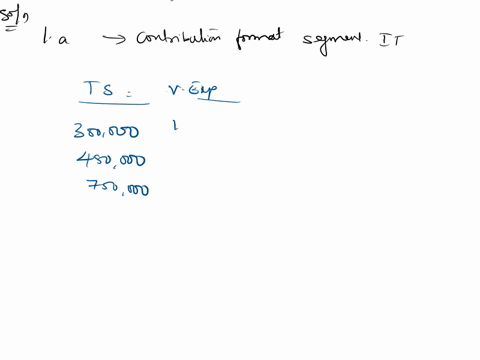 Soln
1.a → Contribution format segment. IT
TS = V. Exp
300,000 1
450,000
750,000